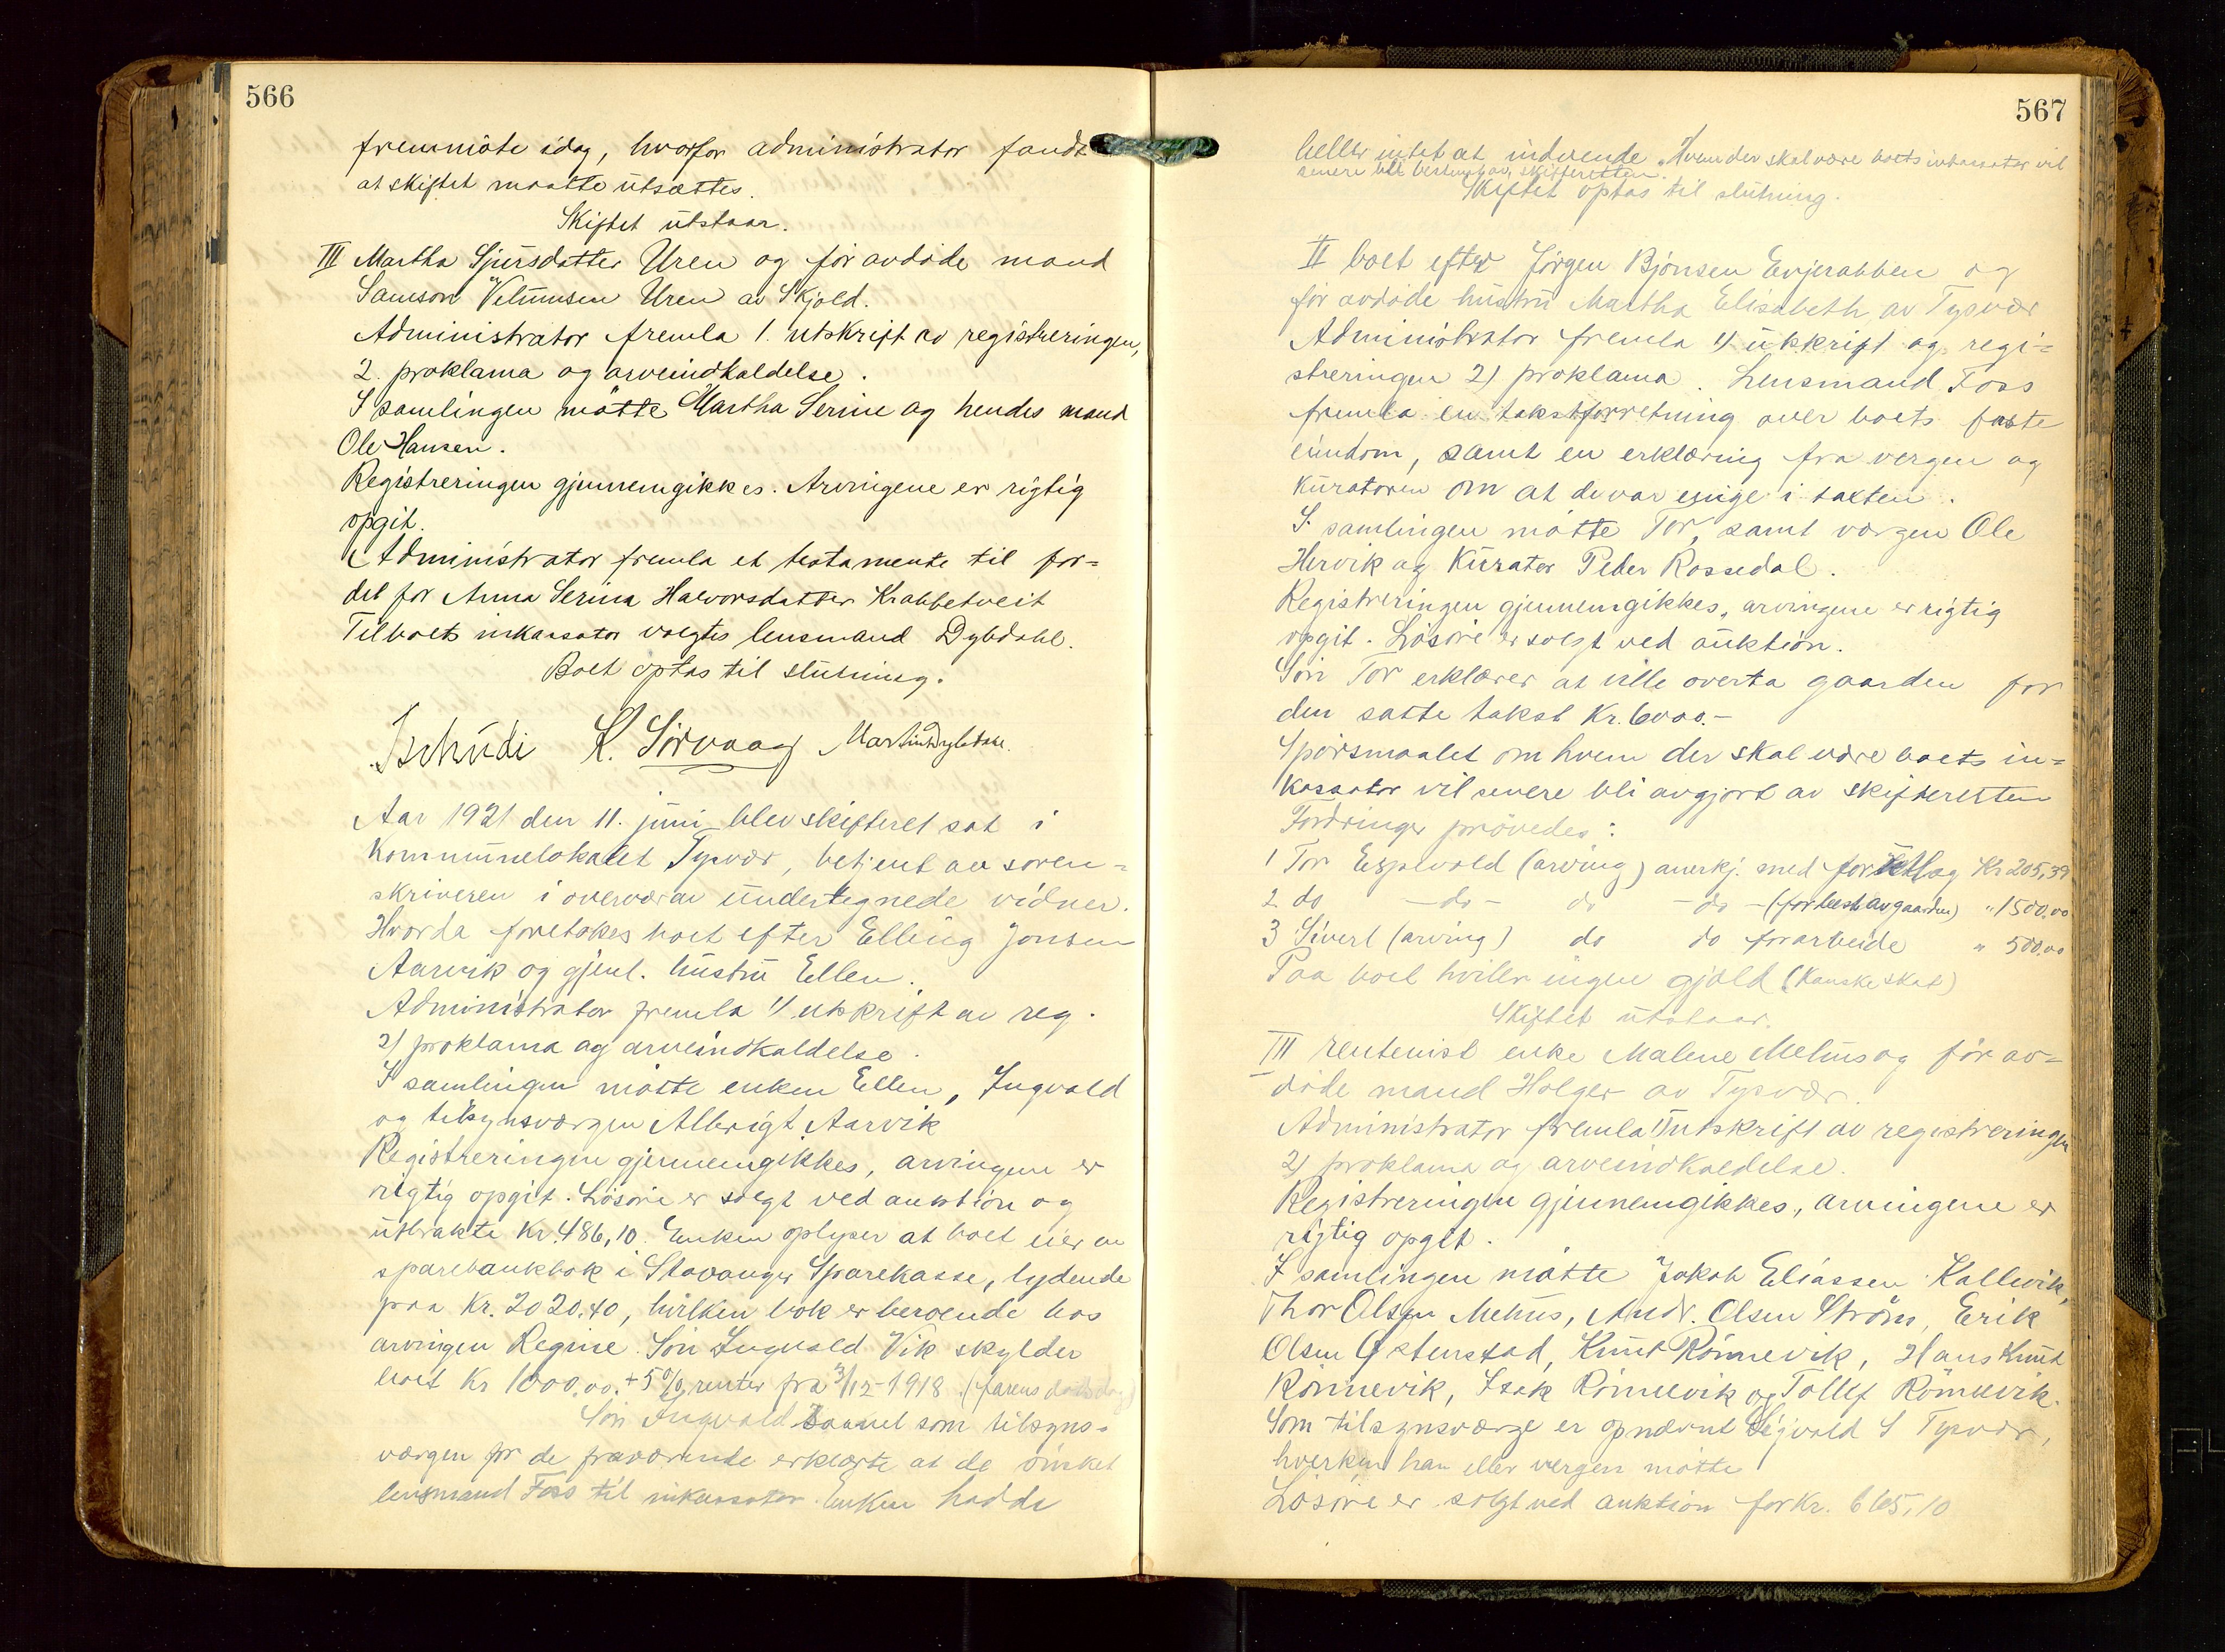 566
fremmöte idag, hvorfor administrator fandt
at skiftet maatte utsættes.
Skiftet utstaar.
III Martha Sjursdatter Uren og før avdöde mand
Samson Uren av Skjold.
Administrator fremla 1. utskrift av registreringen,
2. proklama og arveindkaldelse.
I samlingen mötte Martha Serine og hendes mand
Ole Hansen.
Registreringen gjennemgikkes. Arvingene er rigtig
opgit.
Administrator fremla et testamente til for=
del for Anna Serina Halvorsdatter Krabbetveit
Til boets inkassator valgtes lensmand Dybdahl.
Boet optas til slutning.
Tschudi K. Sörvaag Martin Dybdahl.
Aar 1921 den 11. juni blev skifteret sat i
Kommunelokalet Tysvær, betjent av soren=
skriveren i overvær av undertegnede vidner.
Hvorda foretokes boet efter Elling Jonsen
Aarvik og gjenl. hustru Ellen.
Administrator fremla 1) utskrift av reg.
2) proklama og arveindkaldelse.
I samlingen mötte enken Ellen, Ingvald
og tilsynsværgen Albrigt Aarvik
Registreringen gjennemgikkes, arvingene er
rigtig opgit. Lösöre er solgt ved auktion og
utbrakte Kr. 486,10. Enken oplyser at boet eier en
sparebankbok i Stavanger Sparekasse, lydende
paa Kr. 2020.40, hvilken bok er beroende hos
arvingen Regine. Sön Ingvald Vik skylder
boet Kr 1000.00. + 5% renter fra 3/12-1918. (farens dödsdag)
Sön Ingvald saavel som tilsyns=
værgen for de fraværende erklærte at de önsket
lensmand Foss til inkassator. Enken hadde
567
heller intet at indvende. Hvem der skal være boets inkassator vil
senere bli bestemt av skifteretten.
Skiftet optas til slutning.
II boet efter Jörgen Bjönsen Evjerabben og
før avdöde hustru Martha Elisabeth av Tysvær
Administrator fremla 1) utskrift og regi=
streringen 2) proklama. Lensmand Foss
fremla en takstforretning over boets faste
eiendom, samt en erklæring fra vergen og
kuratoren om at de var enige i taxten.
I samlingen mötte Tor, samt værgen Ole
Hervik og Kurator Peder Rossedal.
Registreringen gjennemgikkes, arvingene er rigtig
opgit. Lösöre er solgt ved auktion.
Sön Tor erklærer at ville overta gaarden for
den satte takst Kr. 6000.-
Spörsmaalet om hvem der skal være boets in=
kassator vil senere bli avgjort av skifteretten
Fordringer prövedes:
1 Tor Espevold (arving) anerkj. med for Kr 205,39
2 do -do- do -do- (for hest av gaarden) " 1500,00
3 Sivert (arving) do do for arbeide " 500,00
Paa boet hviler ingen gjæld (Kanske skat)
Skiftet utstaar.
III rentenist enke Malene Mehus og før av=
döde mand Holger av Tysvær.
Administrator fremla 1) utskrift av registreringen
2) proklama og arveindkaldelse.
Registreringen gjennemgikkes, arvingene er
rigtig opgit.
I samlingen mötte Jakob Eliassen Kallevik,
Thor Olsen Mehus, Andr. Olsen Ström, Erik
Olsen Østenstad, Knut Rönnevik, Hans Knut
Rönnevik, Isak Rönnevik og Tollef Rönnevik.
Som tilsynsværge er opnævnt Sigvald S Tysvær,
hverken han eller vergen mötte
Lösöre er solgt ved auktion for Kr. 665,10